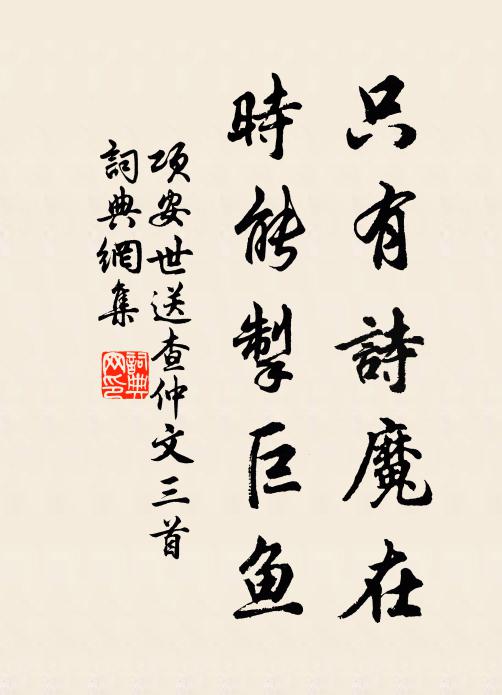 只有詩魔在
時能掣巨鱼
項安世送查仲文三首
詞典網集
詞典
网印